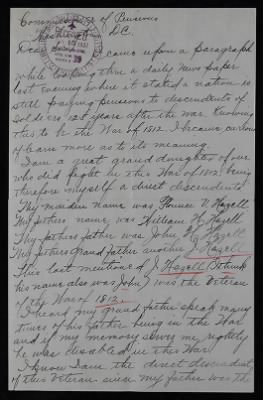 Commissioner of Pensions
Washington D.C.
Dear
I came upon a paragraph
while looking thru a daily news paper
last evening where it stated a nation is
still paying pensions to descendents of
soldiers 125 years after the war. Knowing
this to be the War of 1812. I became curious
to learn more as to its meaning.
I am a great grand daughter of one
who did fight in this War of 1812. being
therefore myself a direct descendent.
My maiden name was Florence V. Hazell
My fathers name was William H. Hazell
My fathers father was John H. Hazell
My fathers Grand father another J Hazell
This last mentioned J Hazell (I think
his name also was John) was the Veteran
of the War of 1812.
I heard my grand father speak many
times of his father being in the War
and if my memory serves me rightly
he was disabled in this War.
I know I am the direct descendent
of this Veteran since my father was the